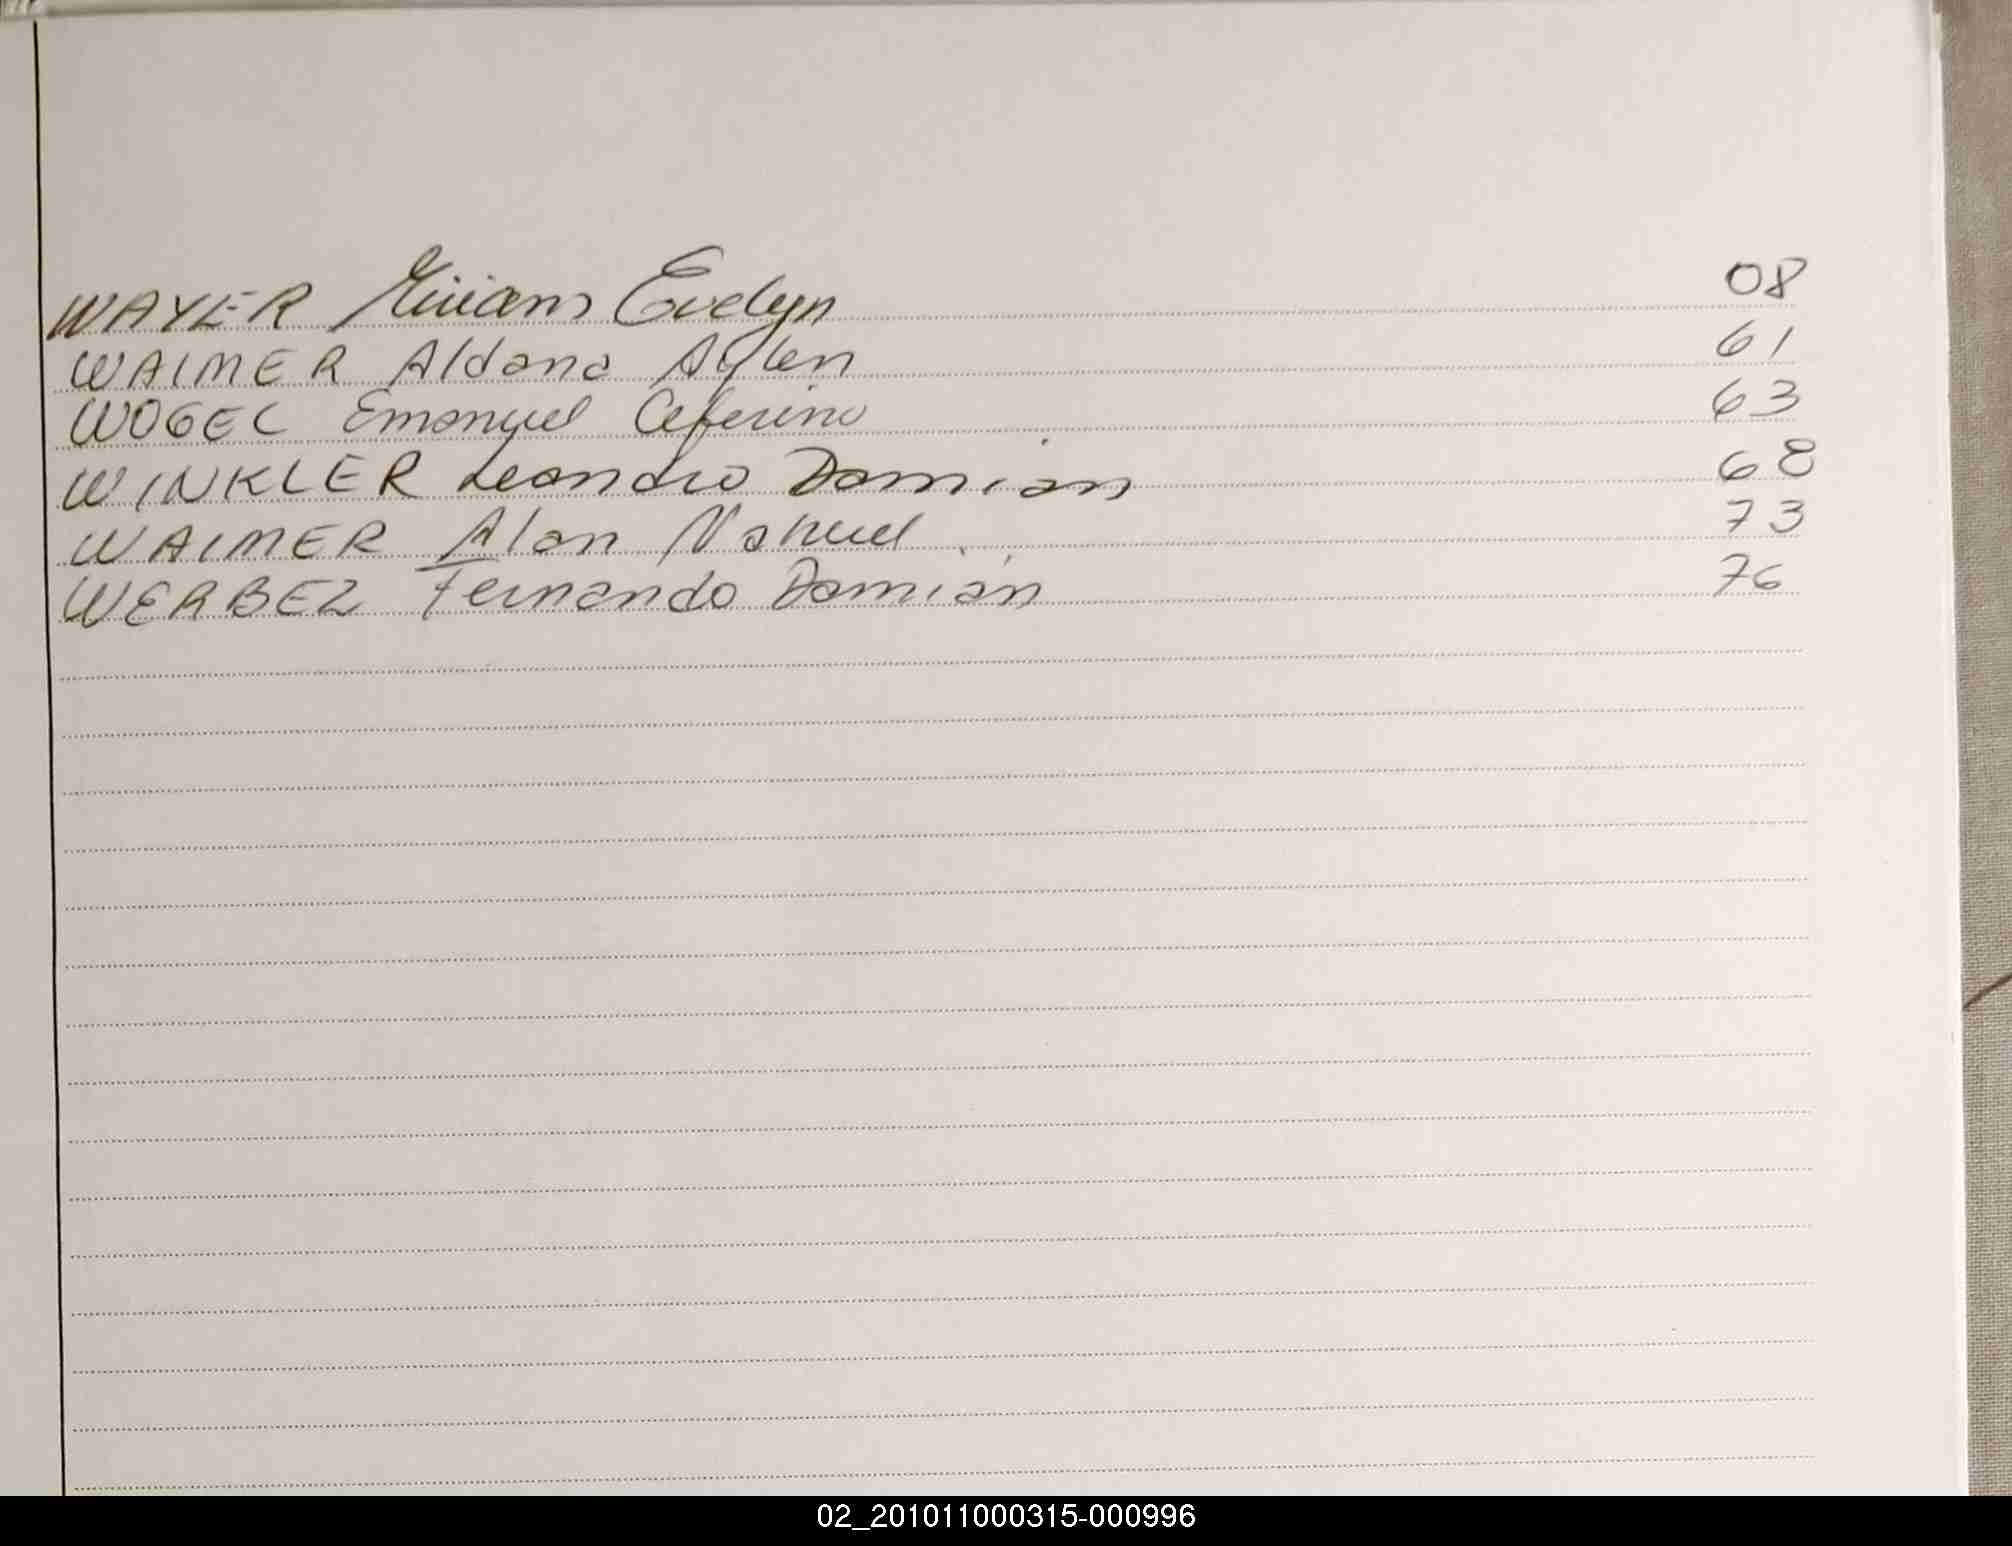 WAYER Miriam Evelyn 08
WAIMER Aldana Aylen 61
WOGEL Emanuel Ceferino 63
WINKLER Leandro Damian 68
WAIMER Alan Nahuel 73
WERBEZ Fernando Damián 76
02_201011000315-000996